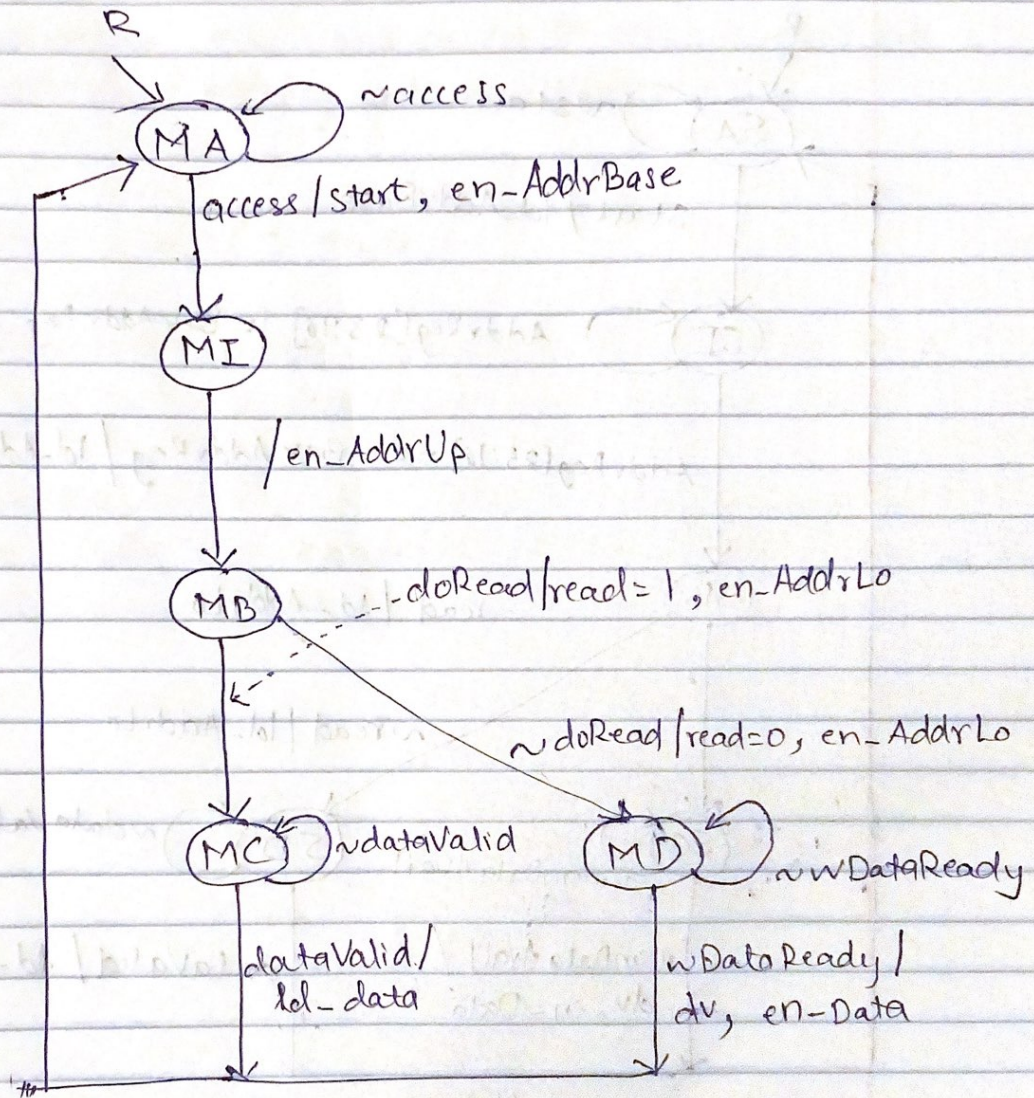 R
~access
MA
access/start, en-AddrBase
MI
/en_AddrUp
doRead/read=1, en-AddrLo
MB
~doRead/read=0, en-AddrLo
MC
~dataValid
MD
~wDataReady
dataValid/
ld_data
wDataReady/
dv, en-Data